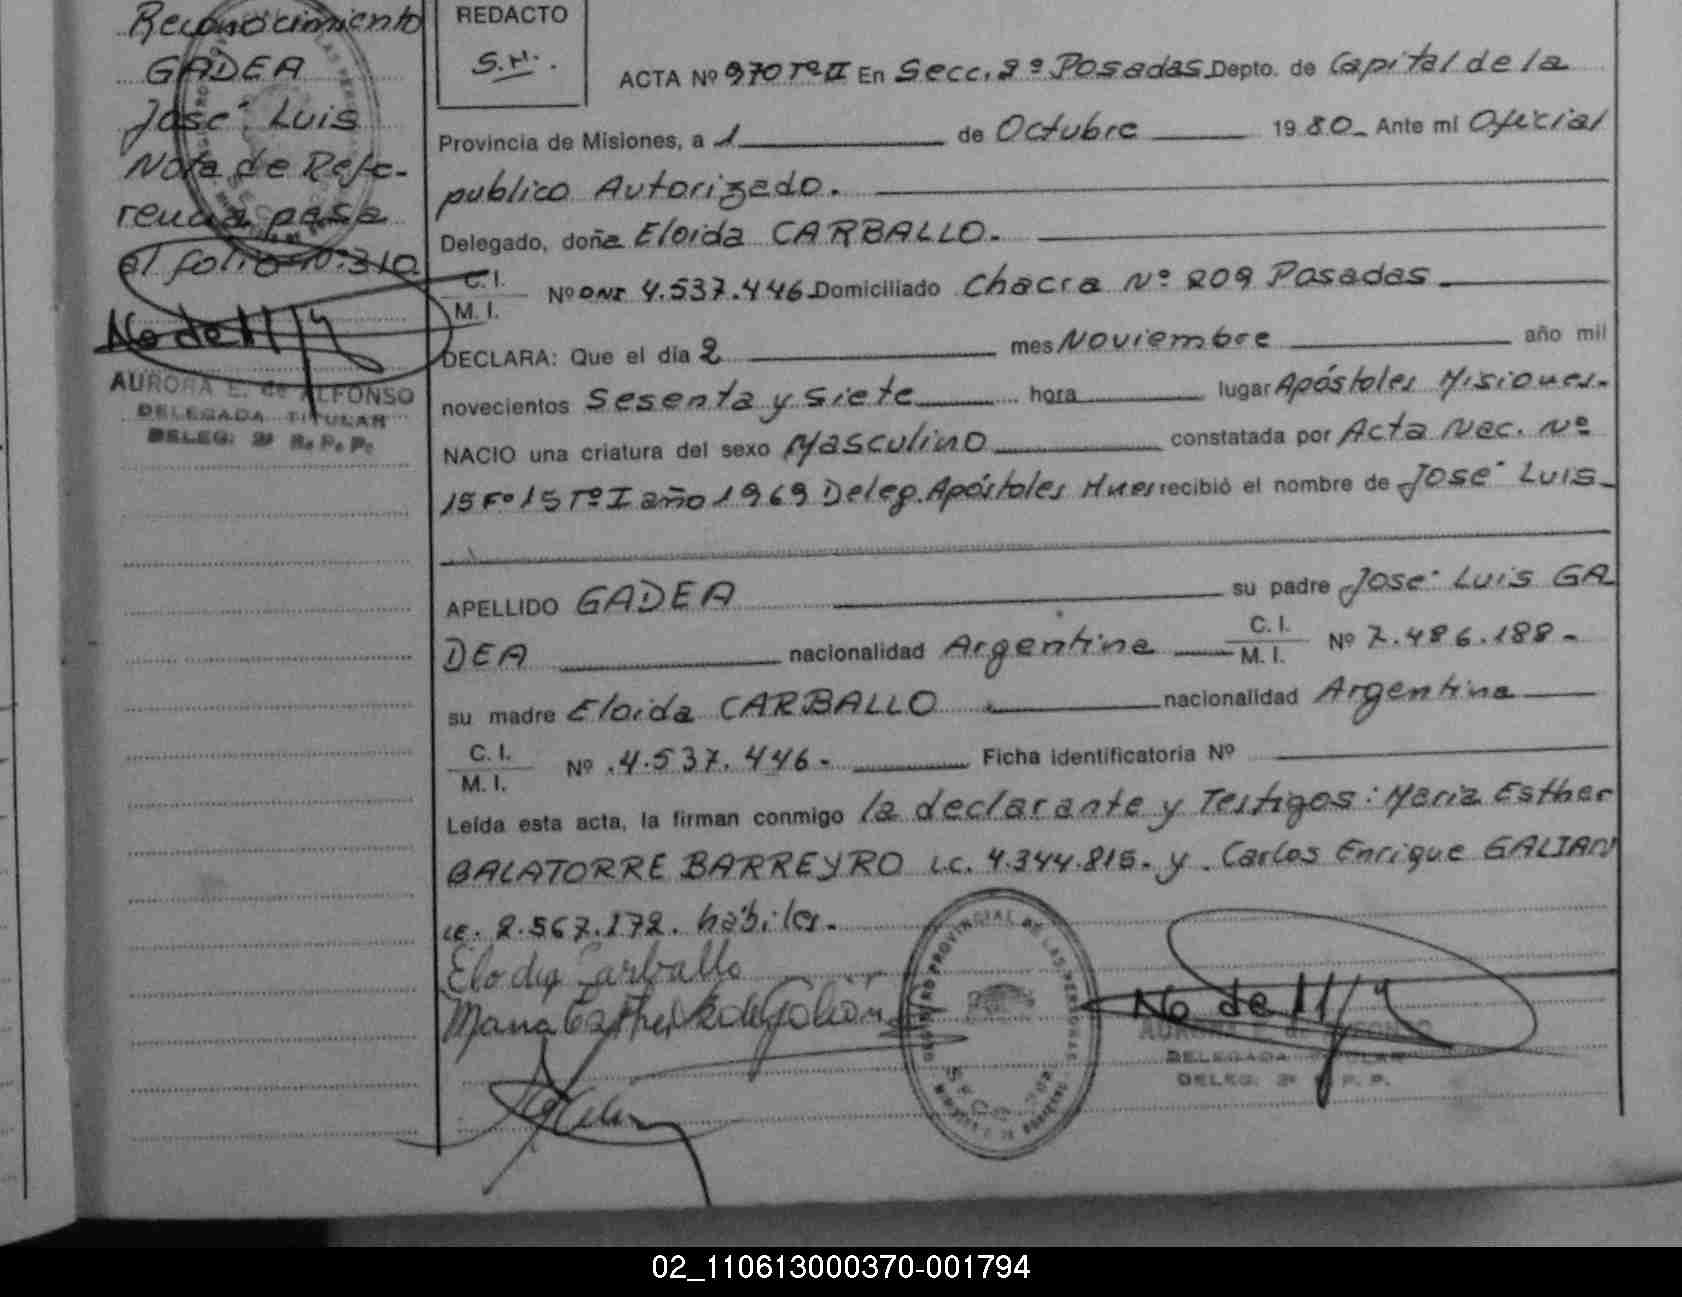 Reconocimiento
GADEA
José Luis
Nota de Refe-
rencia pasa
al folio Nº 310
AURORA E. de ALFONSO
DELEGADA TITULAR
DELEG. 2ª R. P. P.
REDACTO
S.H.
ACTA Nº 970 Tº II En Secc. 2º Posadas Depto. de Capital de la
Provincia de Misiones, a 1 de Octubre 1980 Ante mí Oficial
publico Autorizado.
Delegado, doña Eloida CARBALLO.
C. I.
M. I.
Nº DNI 4.537.446 Domiciliado Chacra Nº 209 Posadas
DECLARA: Que el día 2 mes Noviembre año mil
novecientos Sesenta y Siete hora lugar Apóstoles Misiones.
NACIO una criatura del sexo Masculino constatada por Acta Nac. Nº
15 Fº 15 Tº I año 1969 Deleg. Apóstoles Mnes recibió el nombre de José Luis
APELLIDO GADEA su padre José Luis GA
DEA nacionalidad Argentina C. I.
M. I. Nº 7.486.188-
su madre Eloida CARBALLO nacionalidad Argentina
C. I.
M. I. Nº 4.537.446- Ficha identificatoria Nº
Leída esta acta, la firman conmigo la declarante y Testigos: María Esther
BALATORRE BARREYRO L.C. 4.344.815. y Carlos Enrique GALIAN
LE. 2.567.172. hábiles.
Carballo
REGISTRO PROVINCIAL DE LAS PERSONAS
DELEGADA TITULAR
DELEG. 2ª R. P. P.
02_110613000370-001794